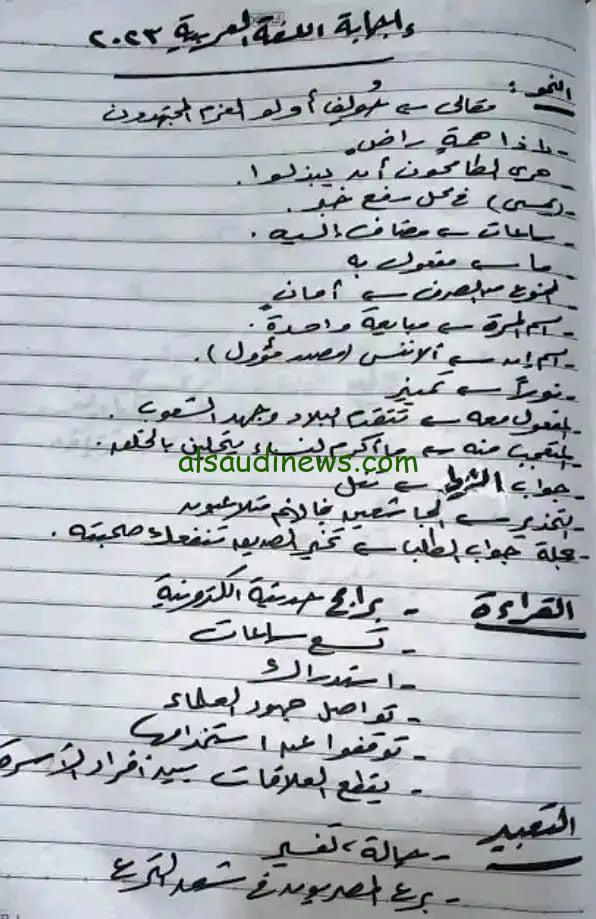 إجابة اللغة العربية ٢٠٢٣
النحو: مقالى ← أولو العزم المجتهدون
- ذا همة راض
- حرى الطامحون أن يبذلوا.
- (يمسى) فى محل رفع خبر.
- ساعات ← مضاف إليه.
- ما ← مفعول به
- الممنوع من الصرف ← أمان
- اسم المرة ← مبايعة واحدة.
- اسم إن ← ألا ننس (مصدر مؤول).
- نوراً ← تمييز
- المفعول معه ← تتقدم البلاد وجهد الشعوب.
- المتعجب منه ← ما أكرم متحلين بالخلق.
alsaudinews.com
- جواب الشرط ← تنل
- التحذير ← الجاشعين فإنهم متلاعبون
- جملة جواب الطلب ← تخير الصديق تنفعك صحبته.
القراءة - برامج حديثة الكترونية
- تسع ساعات
- استدراك
- تواصل جهود العلماء
- توقفوا عن استخدامها
- يقطع العلاقات بين أفراد الأسرة
التعبير - تفسير
- برع المصريون فى